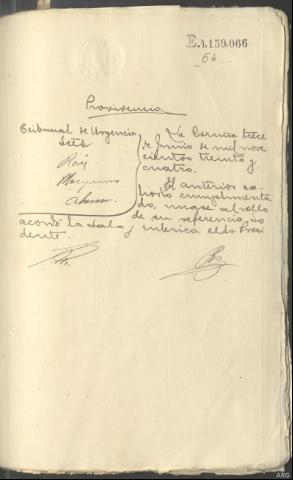 E.4.159.066
54
Providencia
Tribunal de Urgencia
Sres
Rey
Marquina
La Coruña trece
de Junio de mil nove
cientos treinta y
cuatro.
El anterior ex
horto cumplimenta
do, unase al rollo
de su referencia. Lo
acordó la Sala y rubrica el Sr Presi
dente.
ARG